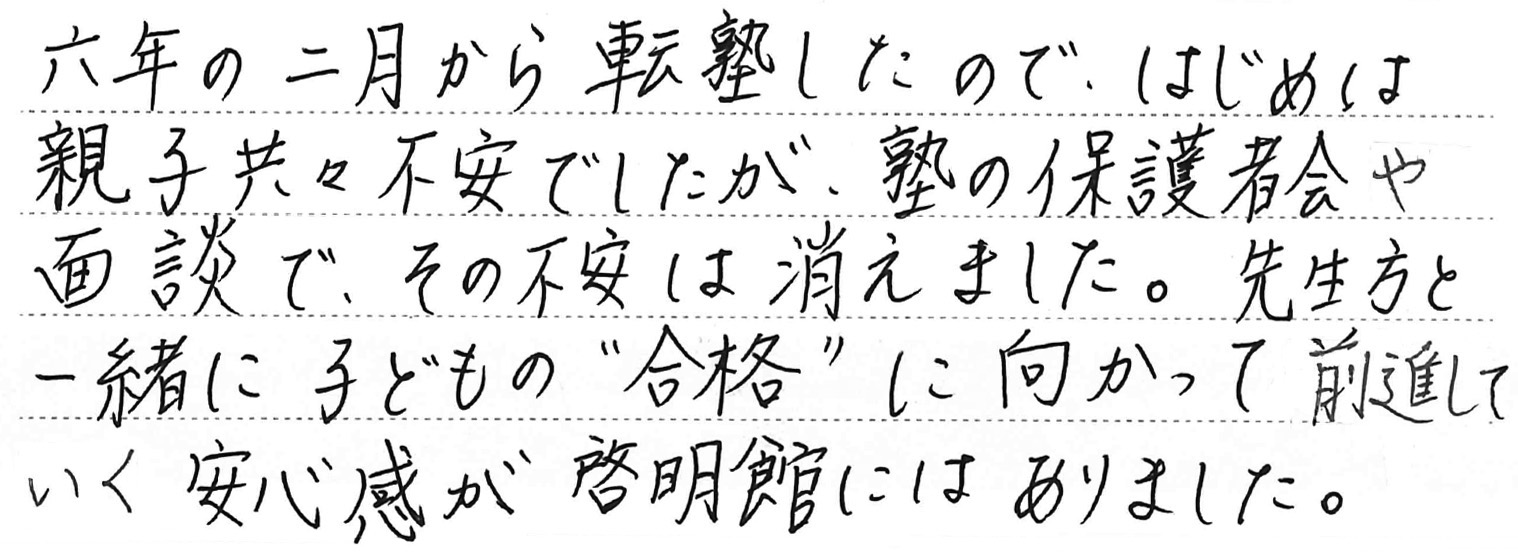 六年の二月から転塾したので、はじめは
親子共々不安でしたが、塾の保護者会や
面談で、その不安は消えました。先生方と
一緒に子どもの“合格”に向かって前進して
いく安心感が啓明館にはありました。